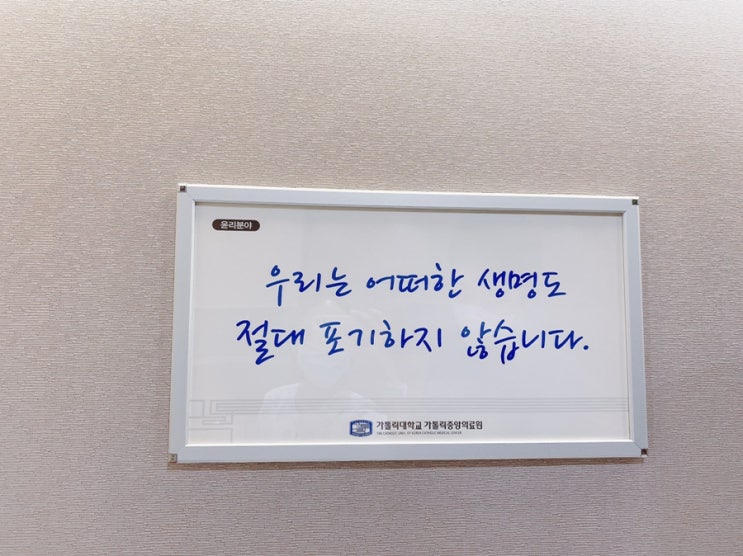 윤리분야
우리는 어떠한 생명도
절대 포기하지 않습니다.
가톨릭대학교 가톨릭중앙의료원
THE CATHOLIC UNIV. OF KOREA CATHOLIC MEDICAL CENTER